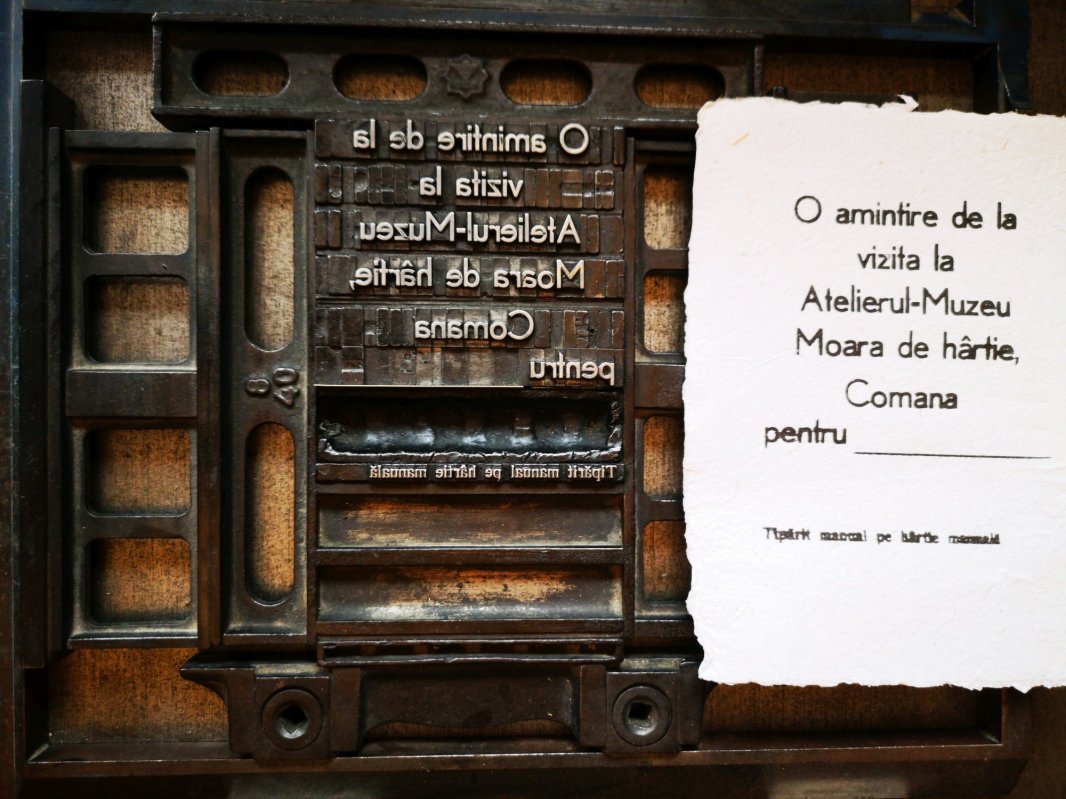 O amintire de la
vizita la
Atelierul-Muzeu
Moara de hârtie,
Comana
pentru
Tipărit manual pe hârtie manuală
8
40
O amintire de la
vizita la
Atelierul-Muzeu
Moara de hârtie,
Comana
pentru
Tipărit manual pe hârtie manuală